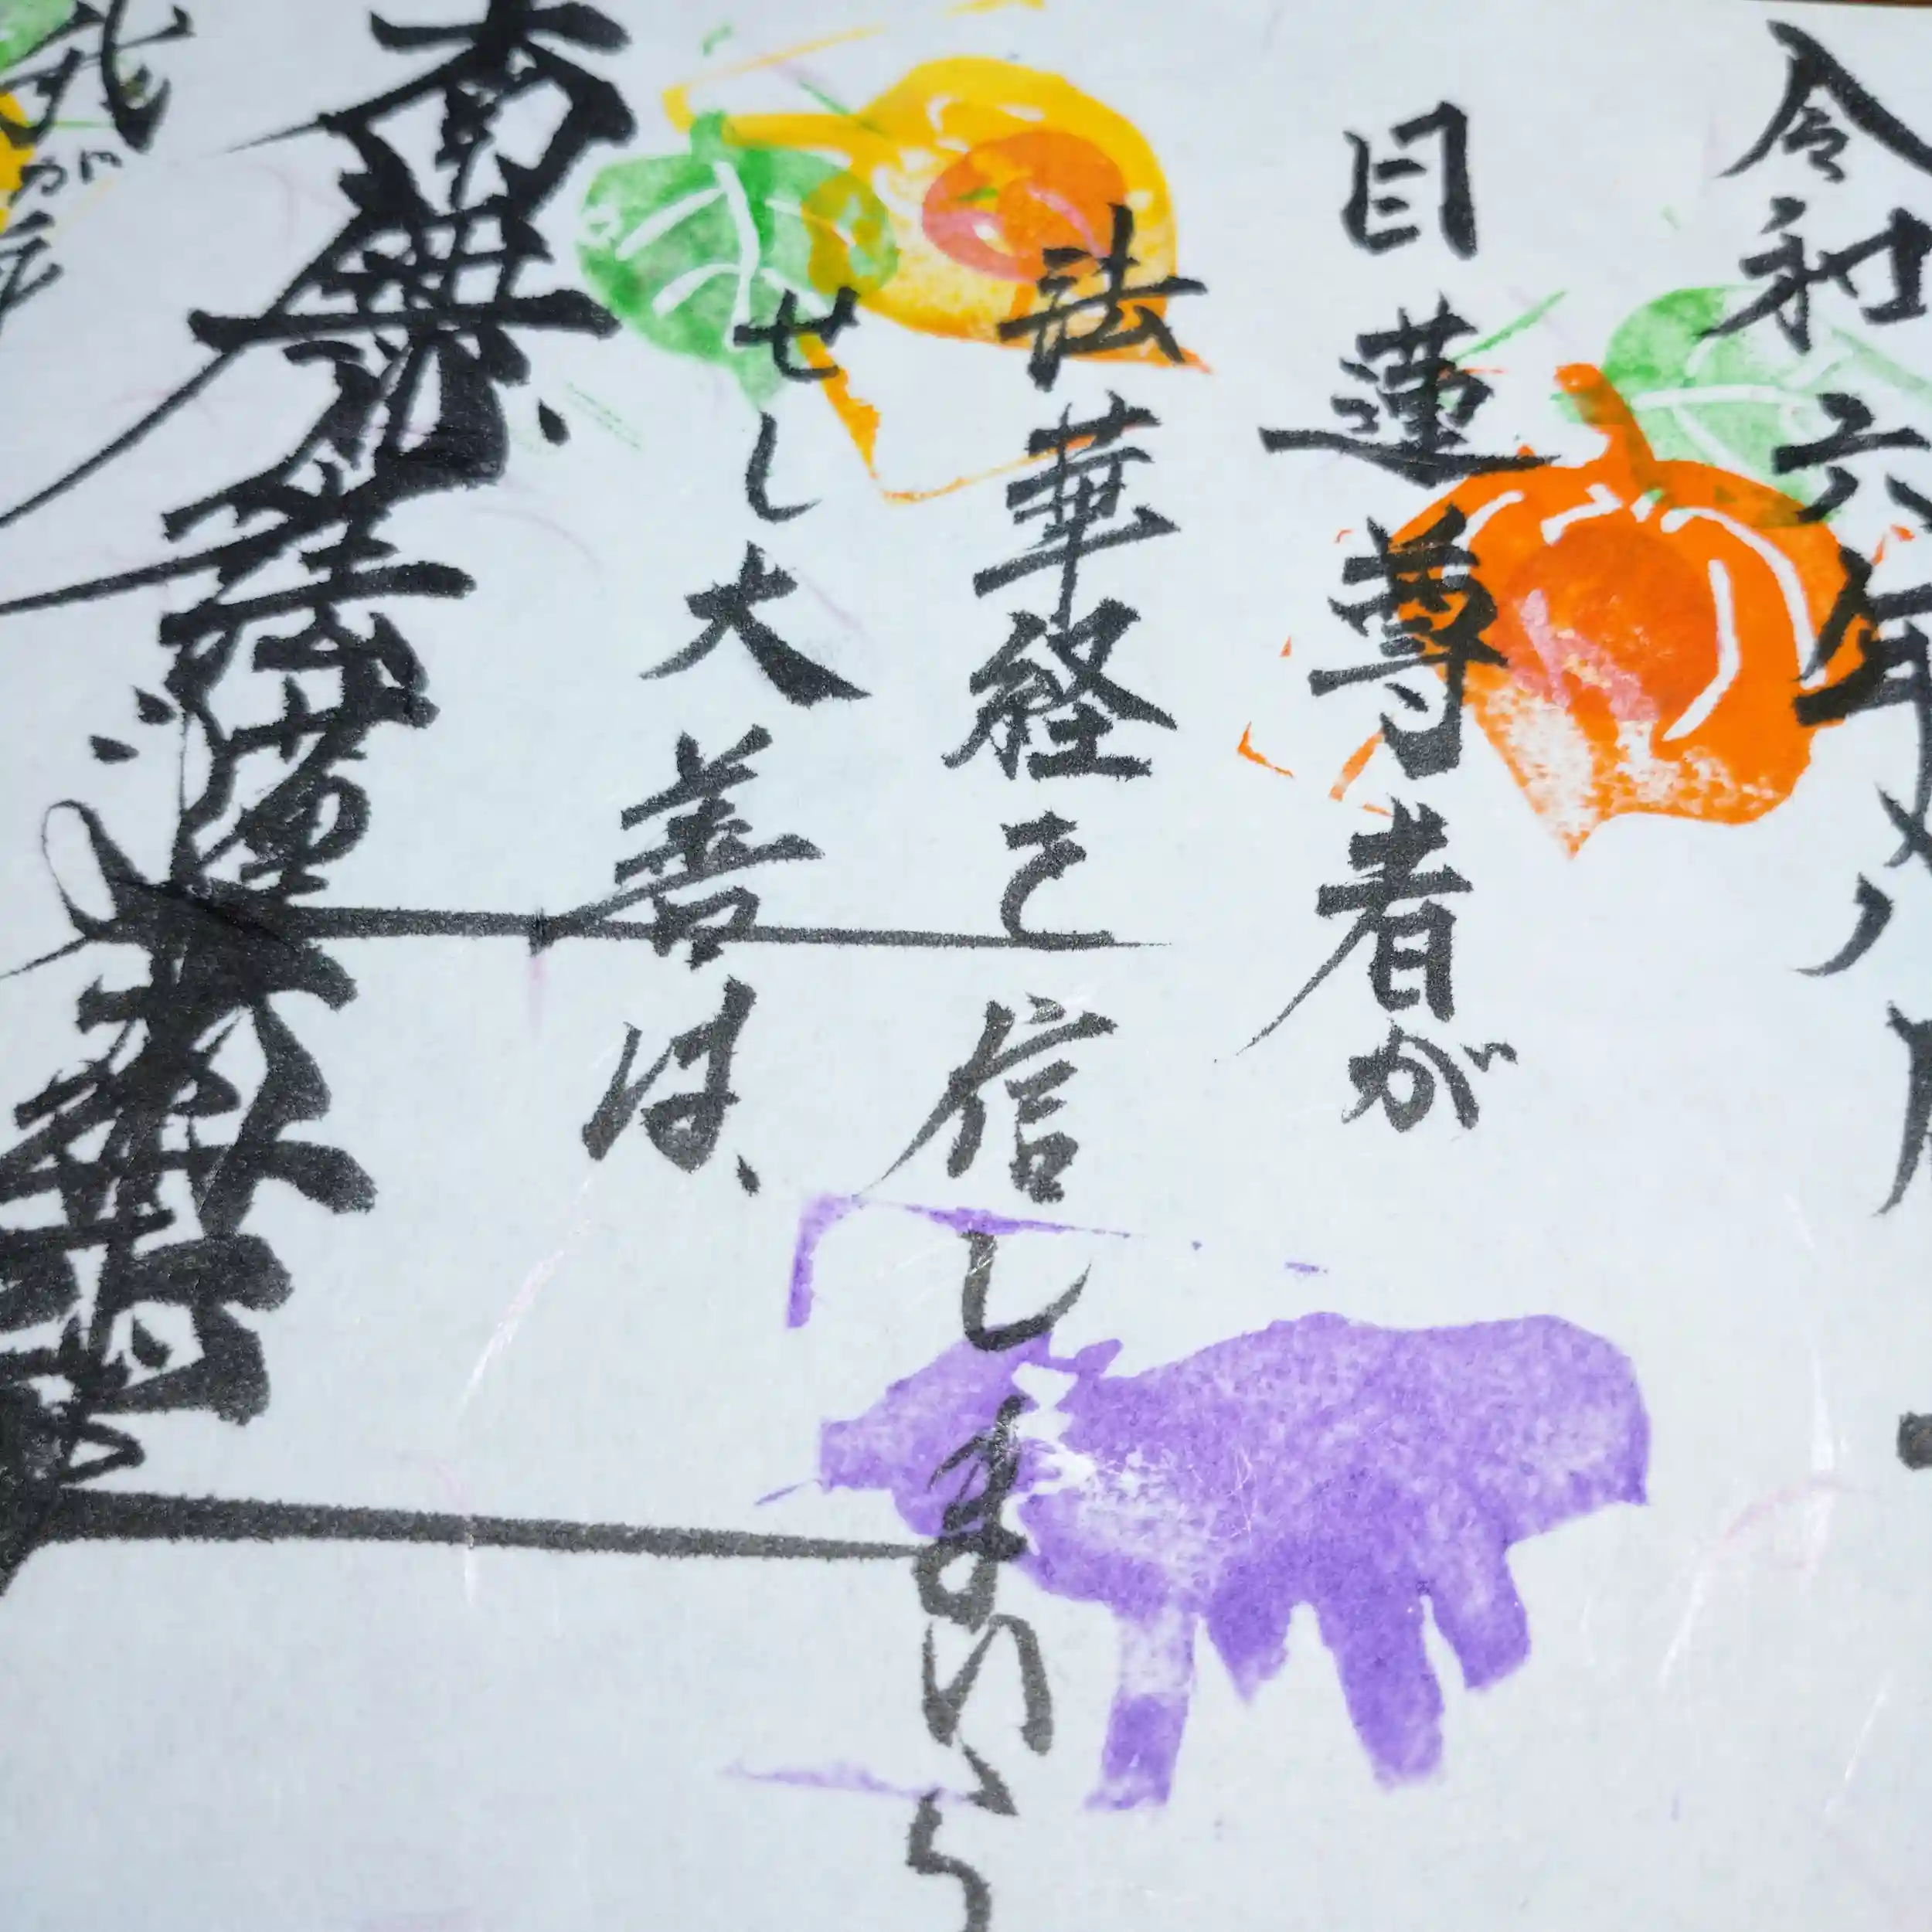 令和六年八月
目蓮尊者が
法華経を信じまいら
せし大善は、
南無妙法蓮華経
我が